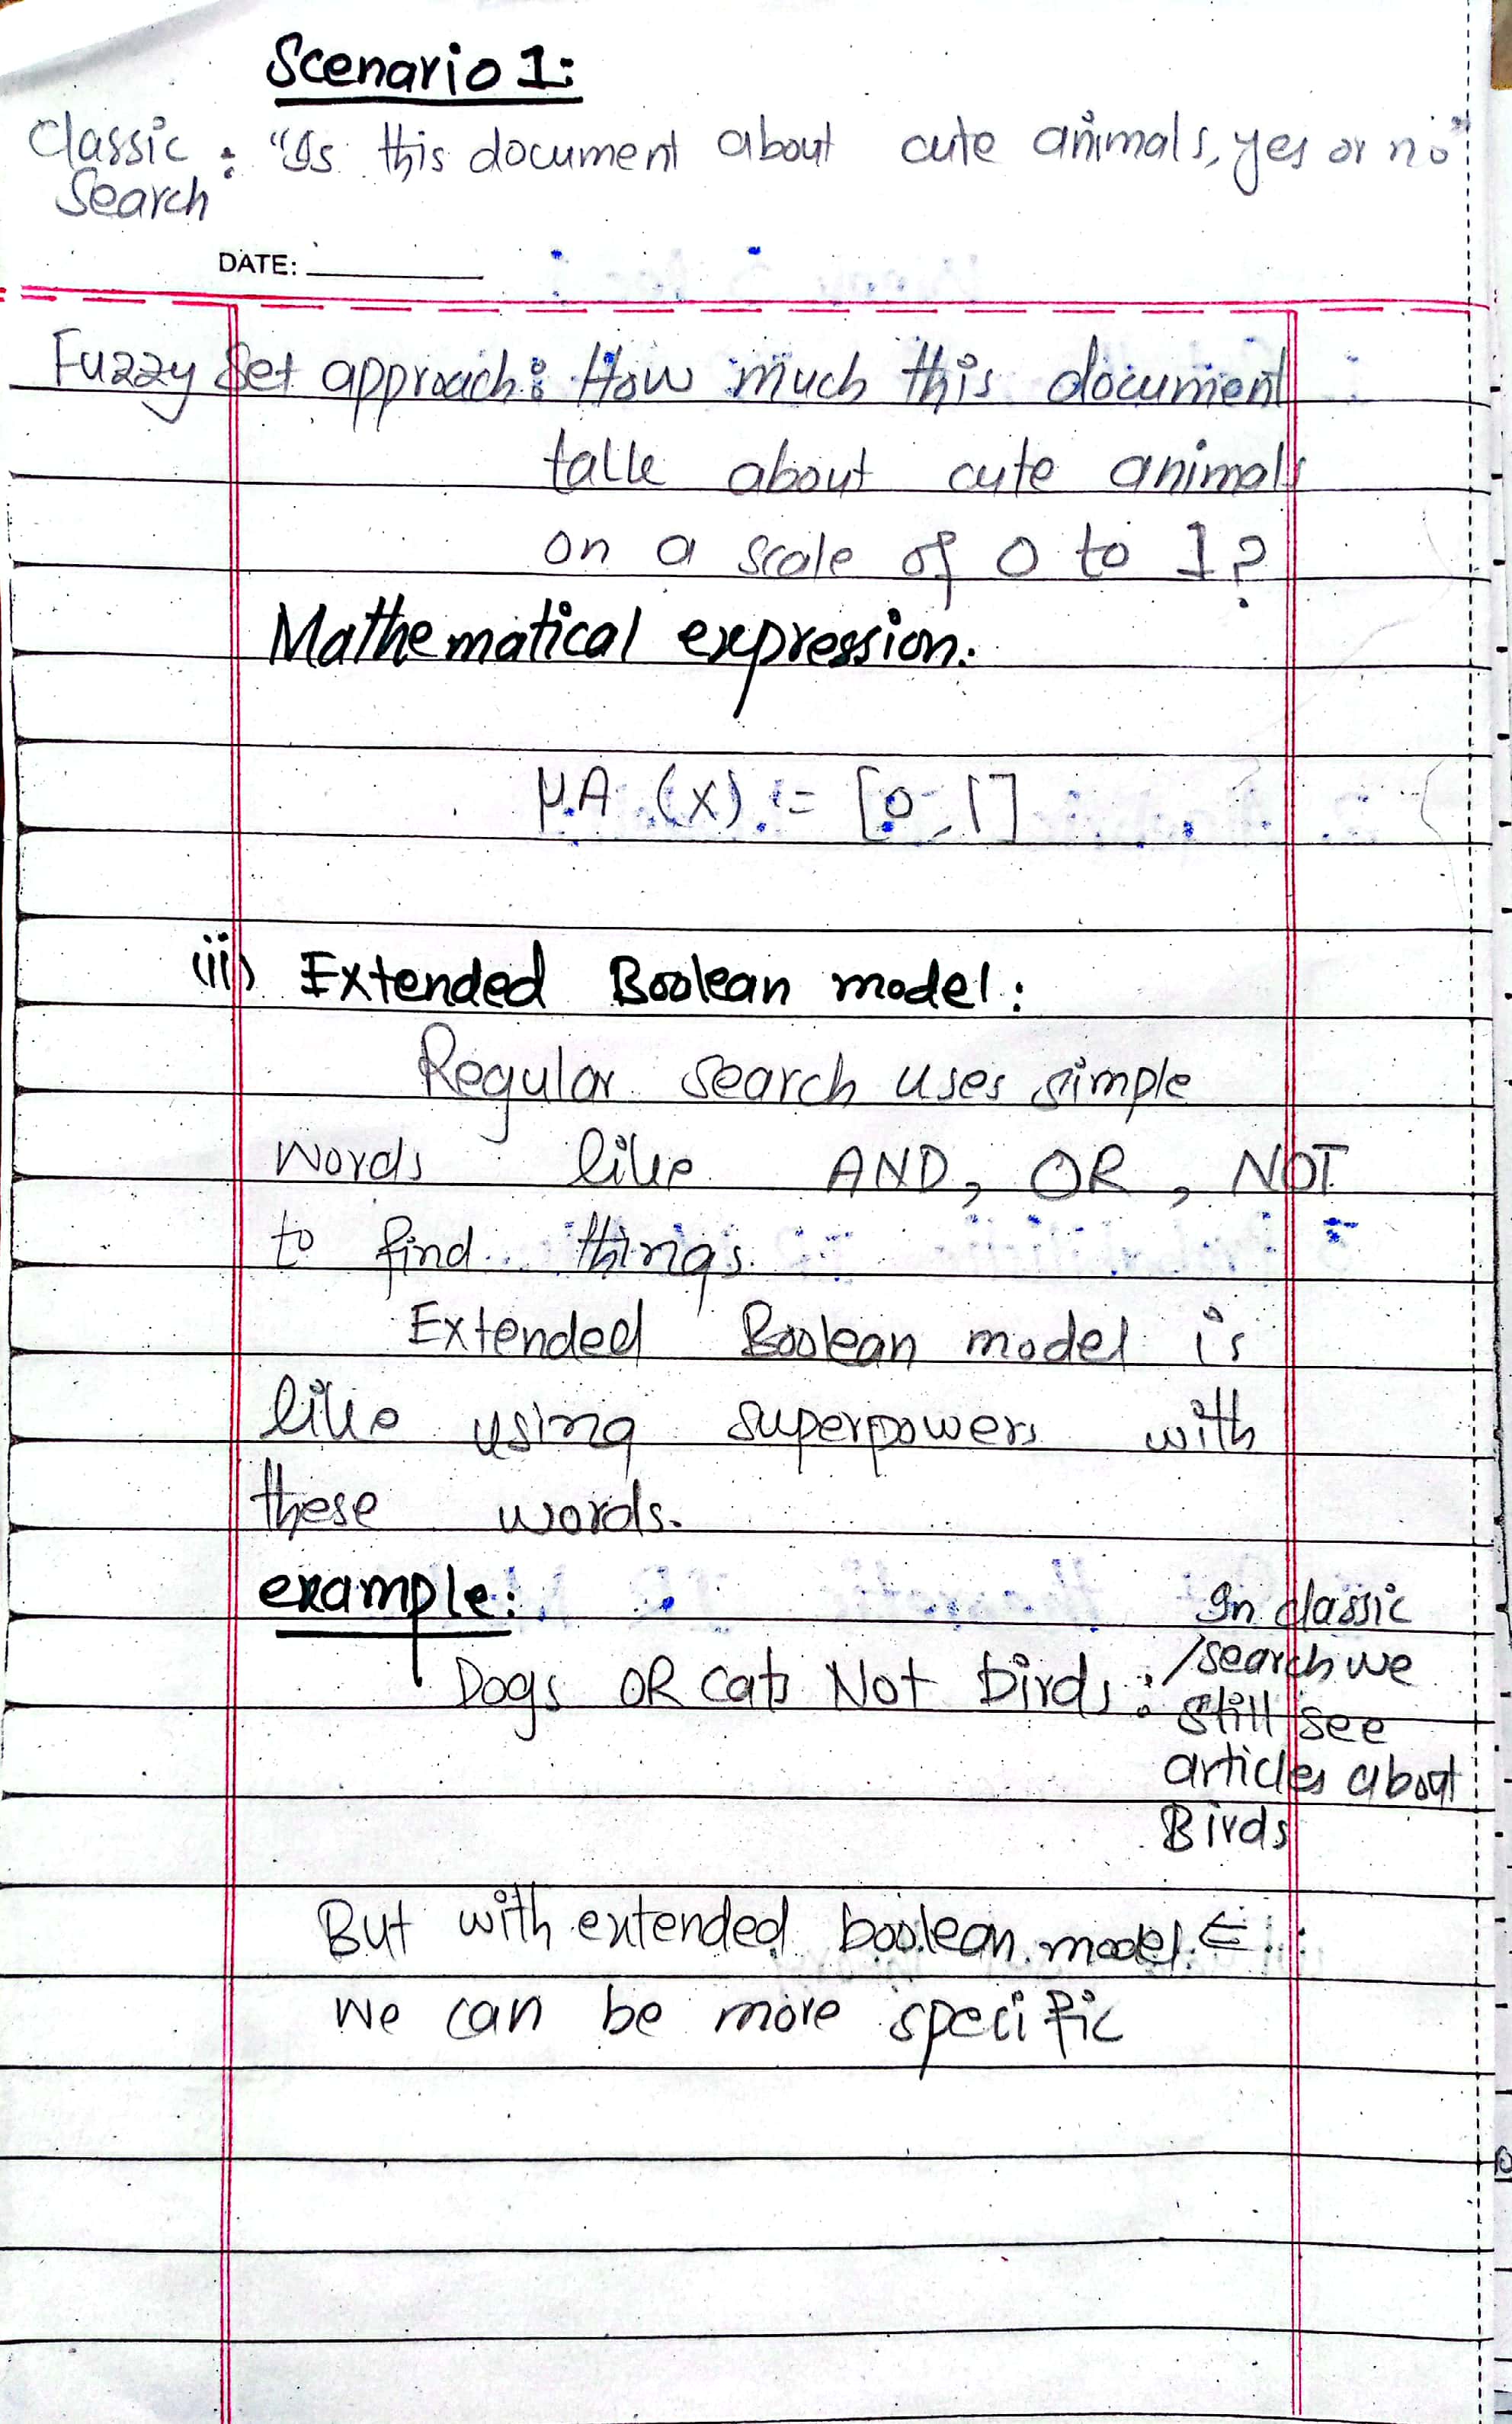 Scenario 1:
Classic Search : "Is this document about cute animals, yes or no"
DATE:
Fuzzy Set approach: How much this document
talk about cute animals
on a scale of 0 to 1?
Mathematical expression.
μA (x) = [0,1]
(ii) Extended Boolean model:
Regular search uses simple
words like AND, OR, NOT
to find things.
Extended Boolean model is
like using superpowers with
these words.
example:
Dogs OR cats Not birds :
In classic
search we
still see
articles about
Birds
But with extended boolean model. ∈
we can be more specific